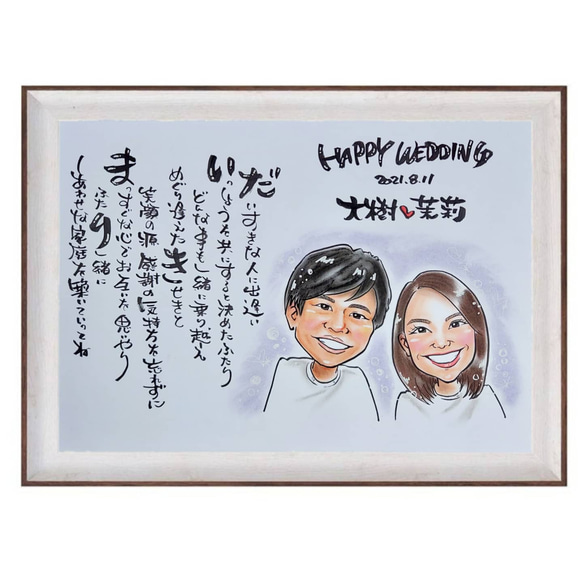 HAPPY WEDDING
2021.8.11
大樹♥茉莉
だいすきな人に出逢い
いっしょうを共にすると決めたふたり
どんな事も一緒に乗り越え
めぐり逢えたきせきと
笑顔の源 感謝の気持ちを忘れずに
まっすぐな心でお互いを思いやり
ふたり一緒に
しあわせな家庭を築いていってね